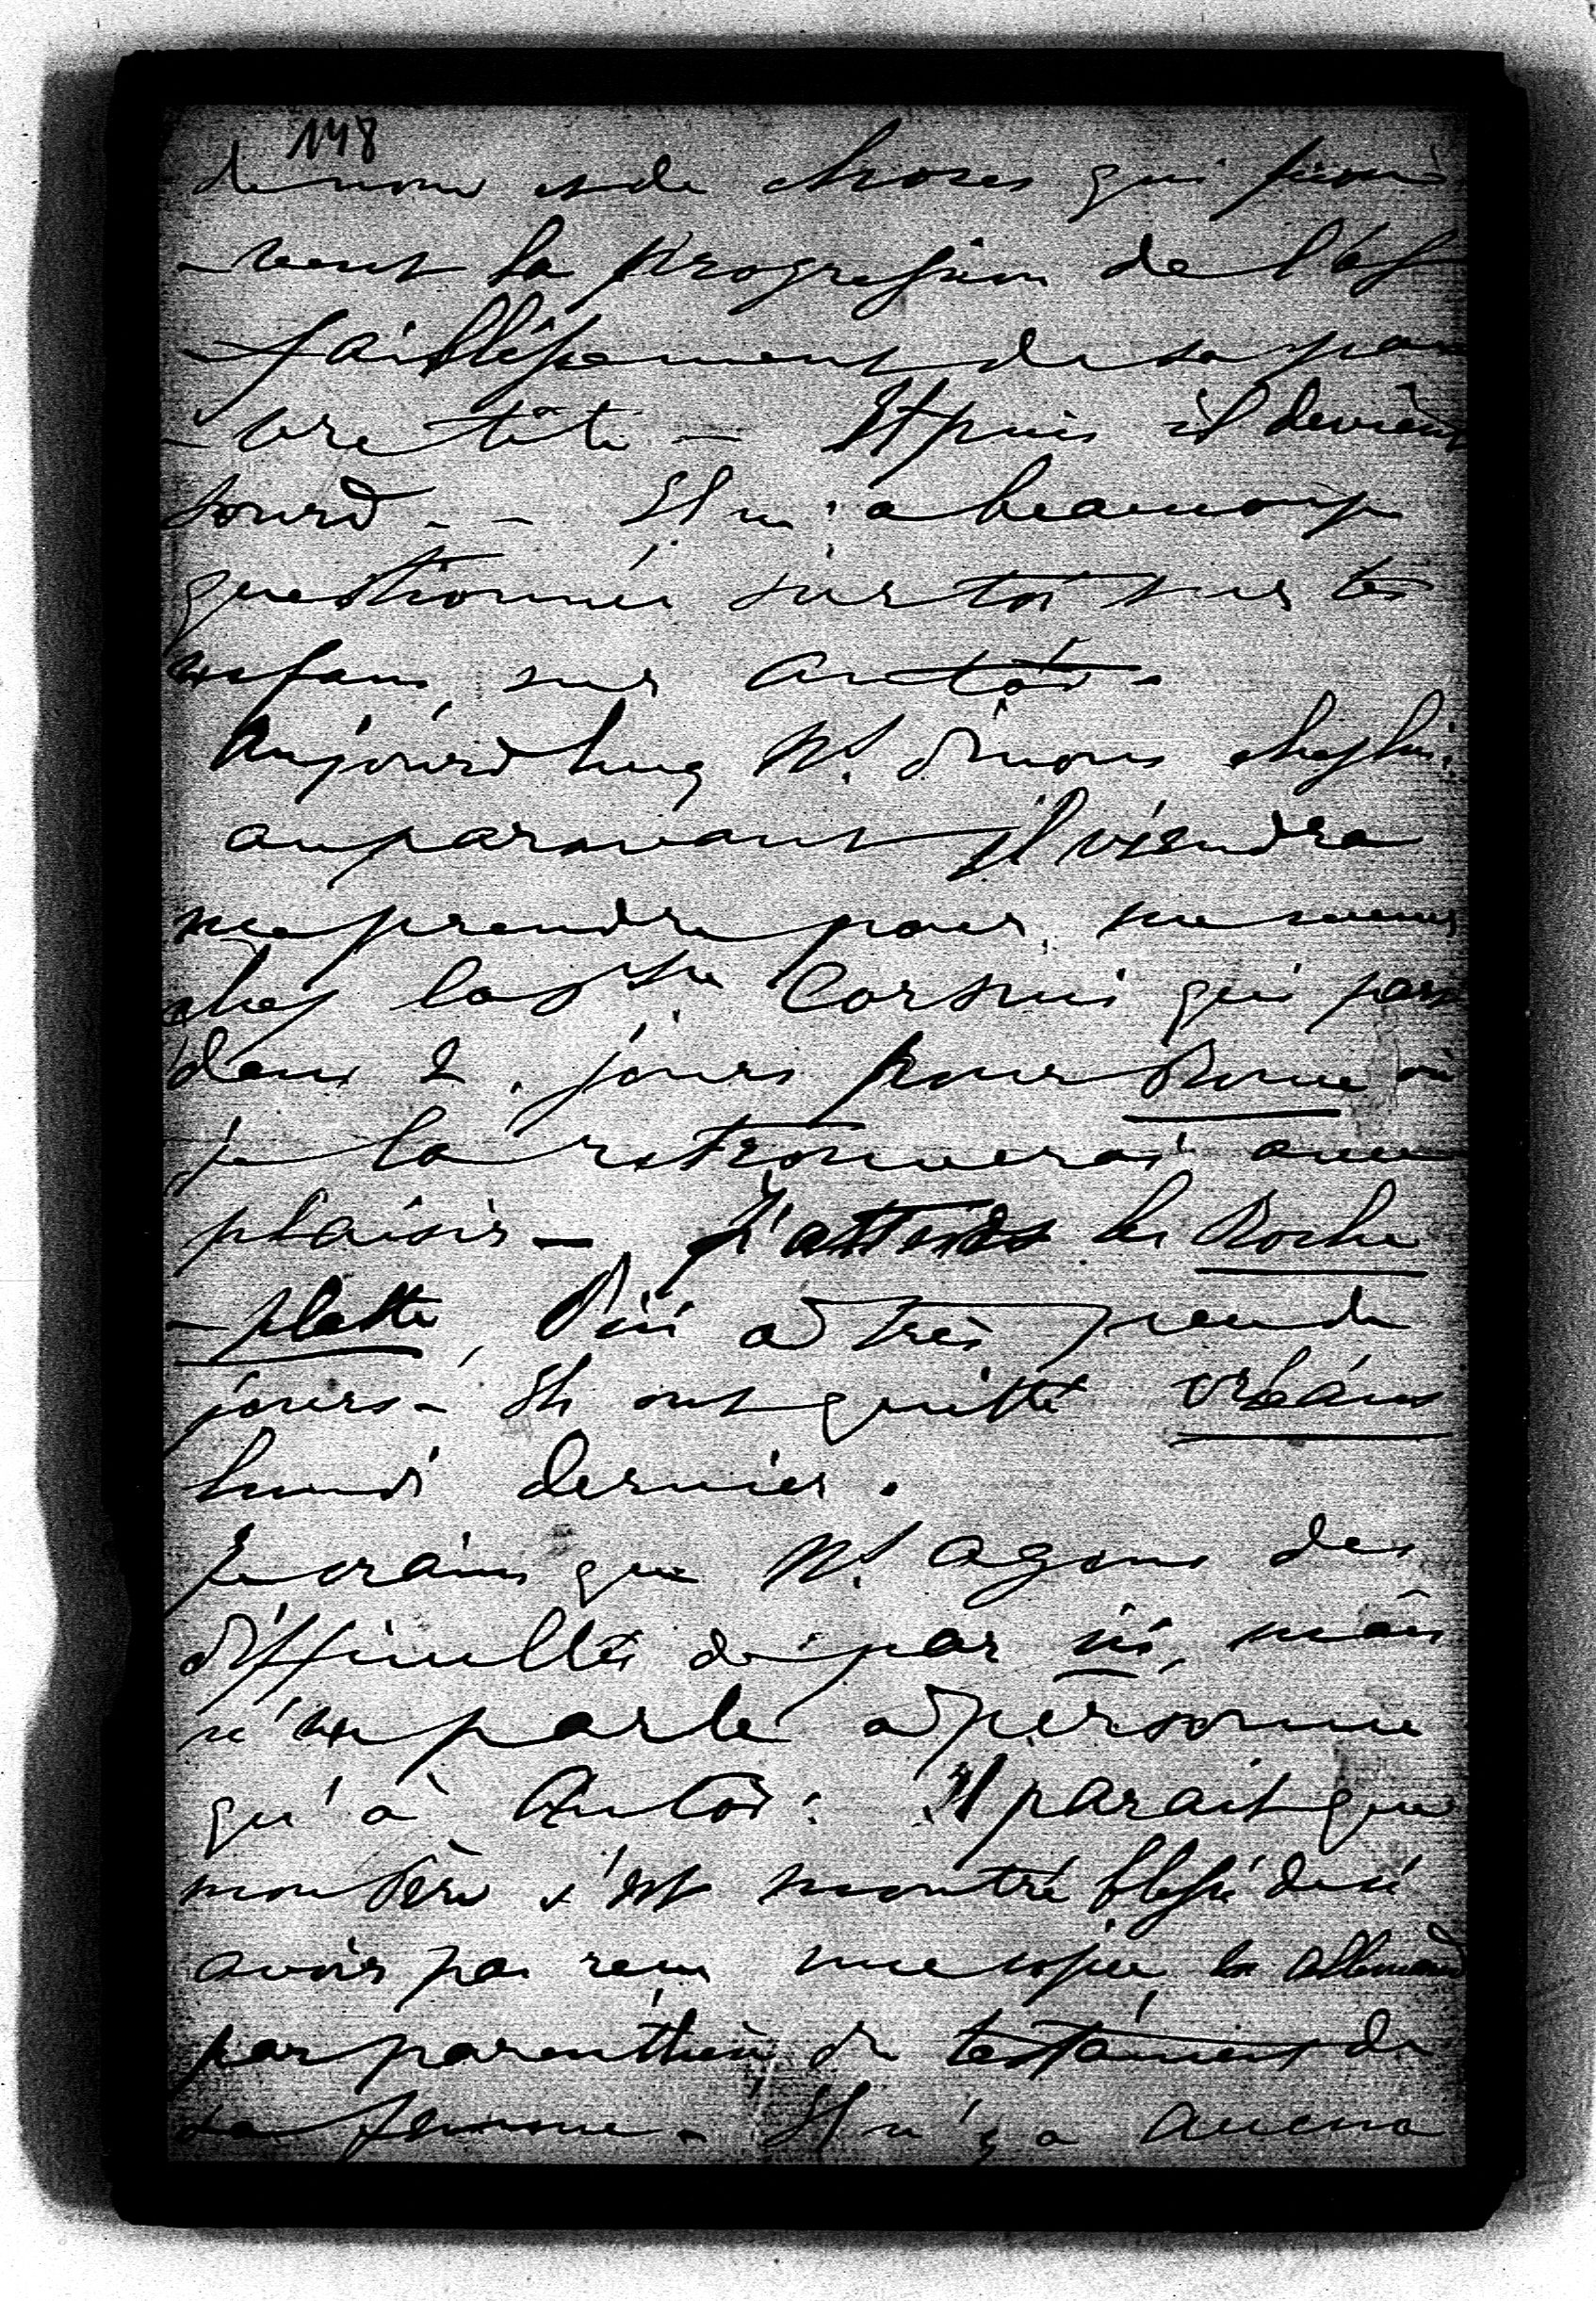 148
de noms et de choses qui prou
-vent la progression de l'af
-faiblissement de sa pau
-vre tête - Et puis il devient
sourd - - Il m'a beaucoup
questionnée sur toi sur tes
enfans, sur Antoi -
Aujourd'huy Ns. dinons chez lui.
auparavant il viendra
me prendre pour me mener
chez la Psse Corsini qui part
dans 2. jours pour Rome où
je la retrouverai avec
plaisir - J'attends les Roche
-platte, d'ici à très peu de
jours - Ils ont quitté Orléans
lundi dernier.
Je crains que Ns. ayons des
difficultés de par ici, mais
n'en parle à personne
qu'à Antoi : Il parait que
mon Père s'est montré blessé de n'
avoir pas reçu une copie en allemand
par parenthèse, du testament de
sa femme - Il n'y a aucun